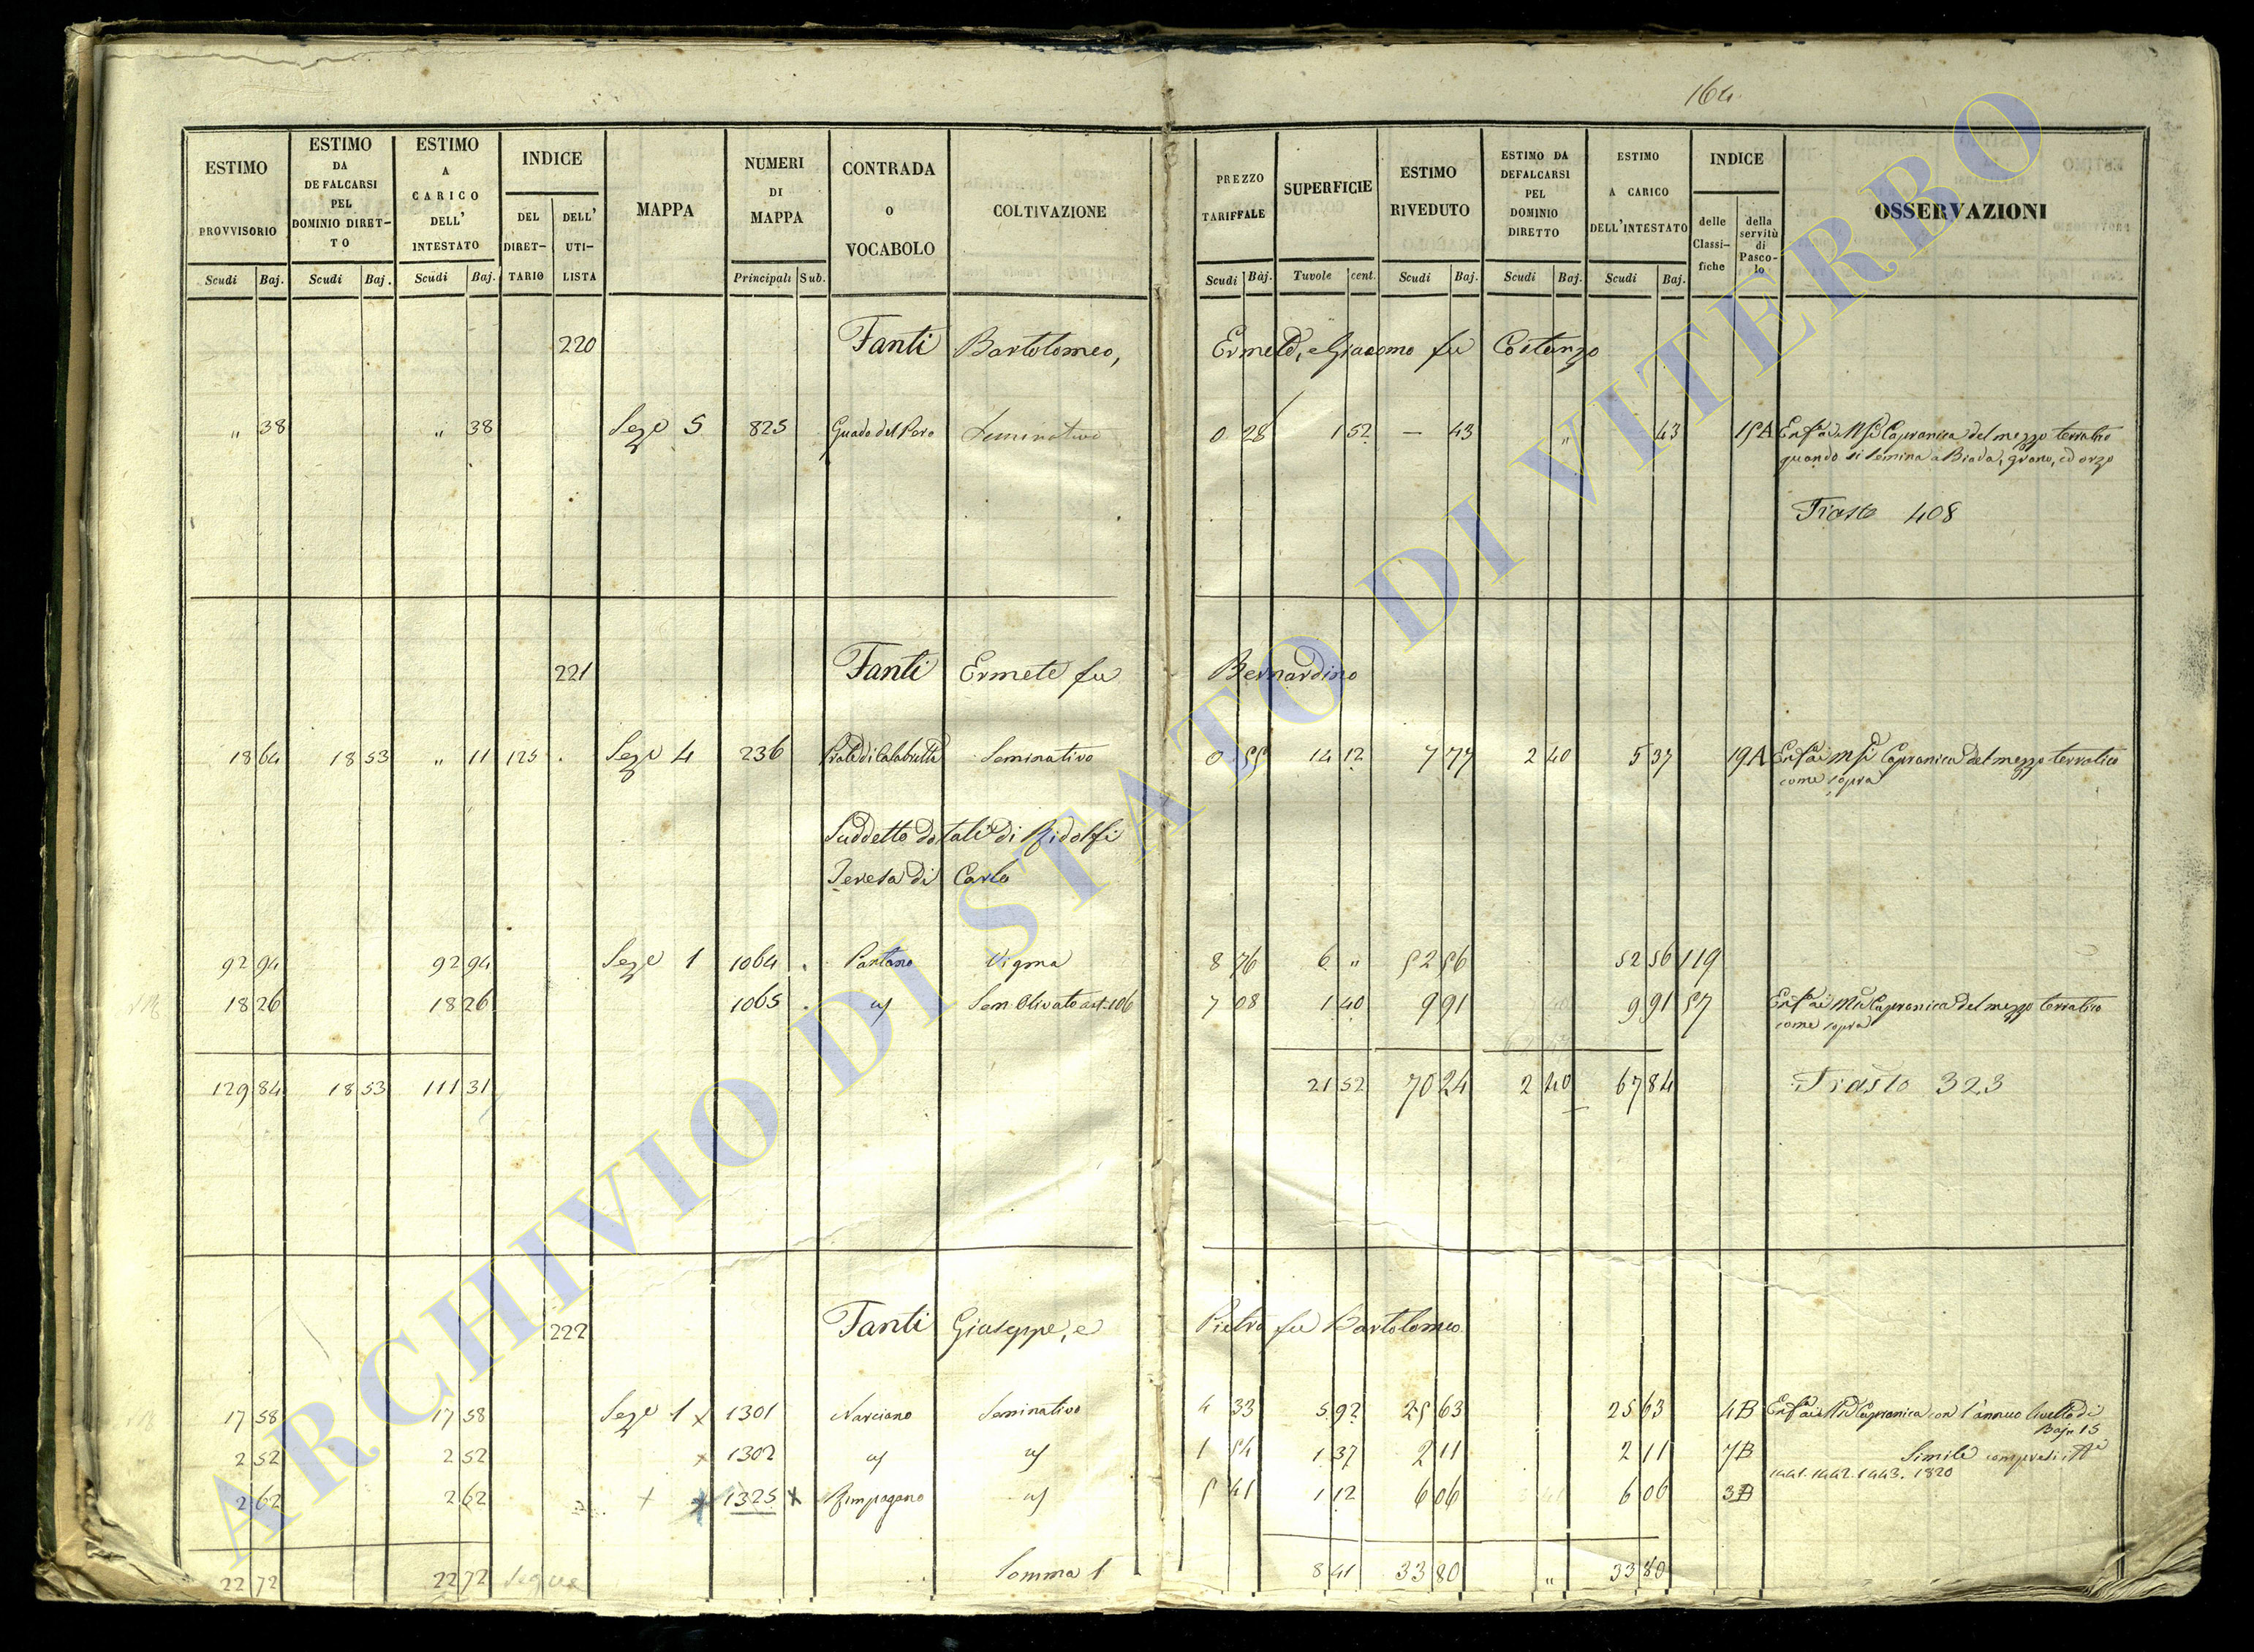 164
ESTIMO PROVVISORIO Scudi Baj.
ESTIMO DA DEFALCARSI PEL DOMINIO DIRETTO Scudi Baj.
ESTIMO A CARICO DELL' INTESTATO Scudi Baj.
INDICE DEL DIRETTARIO DELL' UTILISTA
MAPPA
NUMERI DI MAPPA Principali Sub.
CONTRADA O VOCABOLO
COLTIVAZIONE
PREZZO TARIFFALE Scudi Baj.
SUPERFICIE Tavole cent.
ESTIMO RIVEDUTO Scudi Baj.
ESTIMO DA DEFALCARSI PEL DOMINIO DIRETTO Scudi Baj.
ESTIMO A CARICO DELL'INTESTATO Scudi Baj.
INDICE delle Classifiche della servitù di Pascolo
OSSERVAZIONI
220 Fanti Bartolomeo, Ermete, e Giacomo fu Costanzo
" 38 " 38 Seze 5 825 Guado del Seminativo 0 28 1 52 — 43 " 43 15A Capranica del mezzo terratico
quando si semina a Biada, grano, ed orzo
Trasto 408
221 Fanti Ermete fu Bernardino
18 64 18 53 " 11 125 Seze 4 236 Seminativo 0 55 14 12 7 77 2 40 5 37 19A Capranica del mezzo terratico
come sopra
Suddetto dotali di Ridolfi
Teresa di Carlo
92 94 92 94 Seze 1 1064 Pantano Vigna 8 76 6 " 52 56 52 56 119
18 26 18 26 1065 Sem Olivato 7 08 1 40 9 91 9 91 57 Capranica del mezzo terratico
come sopra
129 84 18 53 111 31 21 52 70 24 2 40 67 84 Trasto 323
222 Fanti Giuseppe, e Pietro fu Bartolomeo
17 58 17 58 Seze 1 x 1301 Narciano Seminativo 4 33 5 92 25 63 25 63 4B Capranica con l'annuo livello di
Baj 15
2 52 2 52 x 1302 1 54 1 37 2 11 2 11 7B Simile
1441. 1442. 1443. 1820
2 62 2 62 x 1325 x Rimpagano 5 41 1 12 6 06 6 06 3B
22 72 22 72 Segue Somma 1 8 41 33 80 " 33 80
ARCHIVIO DI STATO DI VITERBO